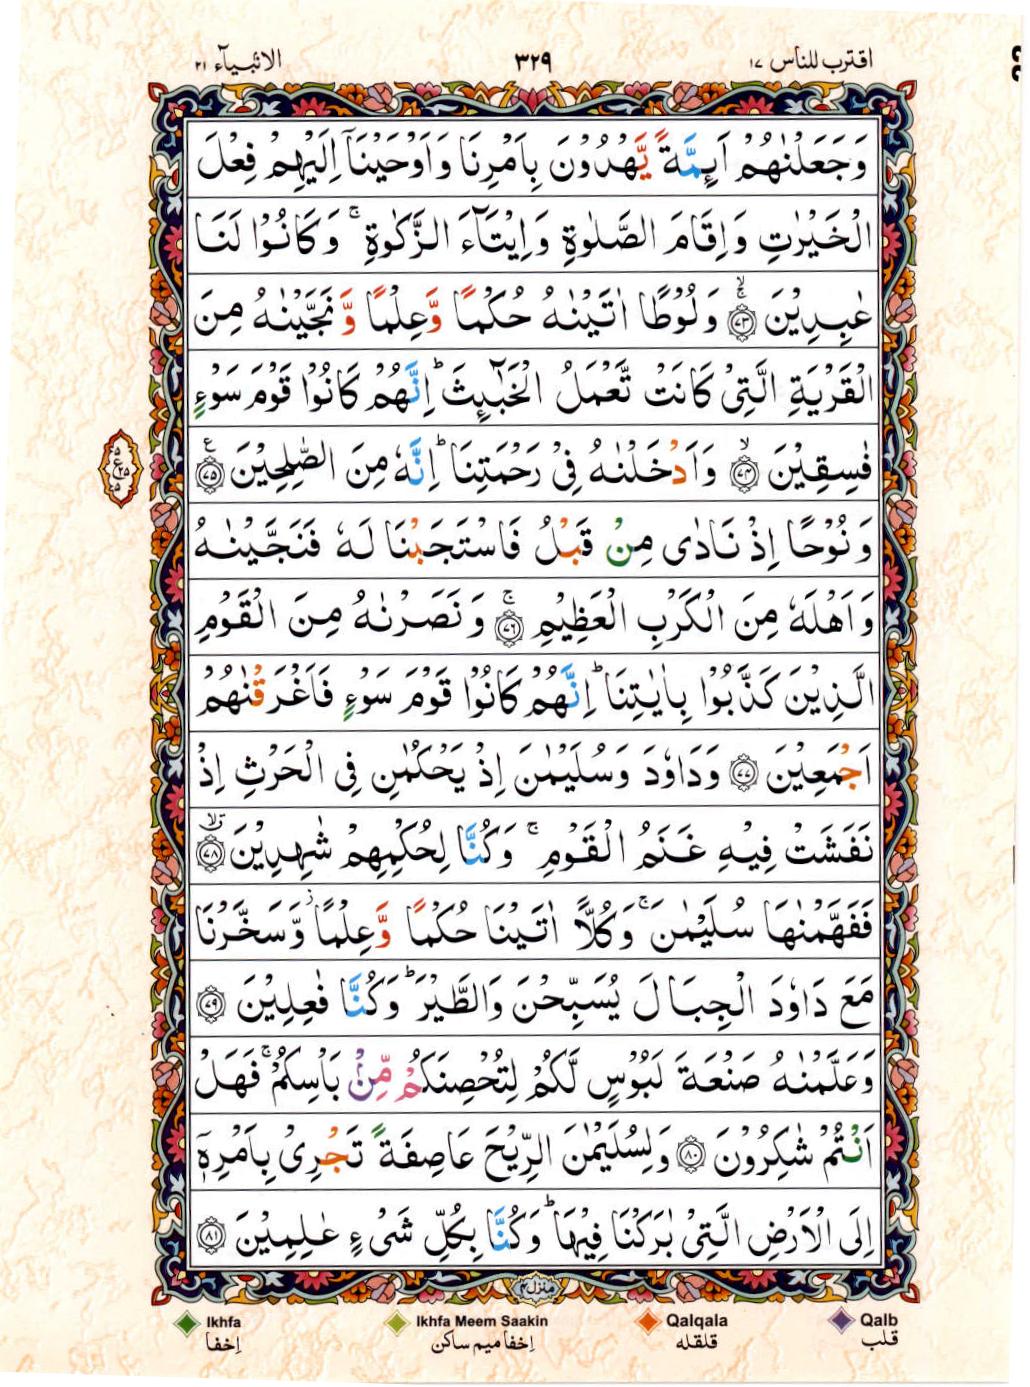 اقترب للناس ١٧
٣٢٩
الانبیآء ٢١
وَجَعَلْنٰهُمْ اَىِٕمَّةً یَّهْدُوْنَ بِاَمْرِنَا وَاَوْحَیْنَاۤ اِلَیْهِمْ فِعْلَ
الْخَیْرٰتِ وَاِقَامَ الصَّلٰوةِ وَاِیْتَآءَ الزَّكٰوةِ ۚ وَكَانُوْا لَنَا
عٰبِدِیْنَ ۚۙ ﴿٧٣﴾ وَلُوْطًا اٰتَیْنٰهُ حُكْمًا وَّعِلْمًا وَّنَجَّیْنٰهُ مِنَ
الْقَرْیَةِ الَّتِیْ كَانَتْ تَّعْمَلُ الْخَبٰٓىِٕثَ ؕ اِنَّهُمْ كَانُوْا قَوْمَ سَوْءٍ
فٰسِقِیْنَ ۙ ﴿٧٤﴾ وَاَدْخَلْنٰهُ فِیْ رَحْمَتِنَا ؕ اِنَّهٗ مِنَ الصّٰلِحِیْنَ ﴿٧٥﴾ ع
وَنُوْحًا اِذْ نَادٰی مِنْ قَبْلُ فَاسْتَجَبْنَا لَهٗ فَنَجَّیْنٰهُ
وَاَهْلَهٗ مِنَ الْكَرْبِ الْعَظِیْمِ ۚ ﴿٧٦﴾ وَنَصَرْنٰهُ مِنَ الْقَوْمِ
الَّذِیْنَ كَذَّبُوْا بِاٰیٰتِنَا ؕ اِنَّهُمْ كَانُوْا قَوْمَ سَوْءٍ فَاَغْرَقْنٰهُمْ
اَجْمَعِیْنَ ﴿٧٧﴾ وَدَاوٗدَ وَسُلَیْمٰنَ اِذْ یَحْكُمٰنِ فِی الْحَرْثِ اِذْ
نَفَشَتْ فِیْهِ غَنَمُ الْقَوْمِ ۚ وَكُنَّا لِحُكْمِهِمْ شٰهِدِیْنَ ﴿٧٨﴾
فَفَهَّمْنٰهَا سُلَیْمٰنَ ۚ وَكُلًّا اٰتَیْنَا حُكْمًا وَّعِلْمًا ؗ وَّسَخَّرْنَا
مَعَ دَاوٗدَ الْجِبَالَ یُسَبِّحْنَ وَالطَّیْرَ ؕ وَكُنَّا فٰعِلِیْنَ ﴿٧٩﴾
وَعَلَّمْنٰهُ صَنْعَةَ لَبُوْسٍ لَّكُمْ لِتُحْصِنَكُمْ مِّنْۢ بَاْسِكُمْ ۚ فَهَلْ
اَنْتُمْ شٰكِرُوْنَ ﴿٨٠﴾ وَلِسُلَیْمٰنَ الرِّیْحَ عَاصِفَةً تَجْرِیْ بِاَمْرِهٖۤ
اِلَی الْاَرْضِ الَّتِیْ بٰرَكْنَا فِیْهَا ؕ وَكُنَّا بِكُلِّ شَیْءٍ عٰلِمِیْنَ ﴿٨١﴾
منزل ٤
Ikhfa
اِخفا
Ikhfa Meem Saakin
اِخفا میم ساکن
Qalqala
قلقله
Qalb
قلب